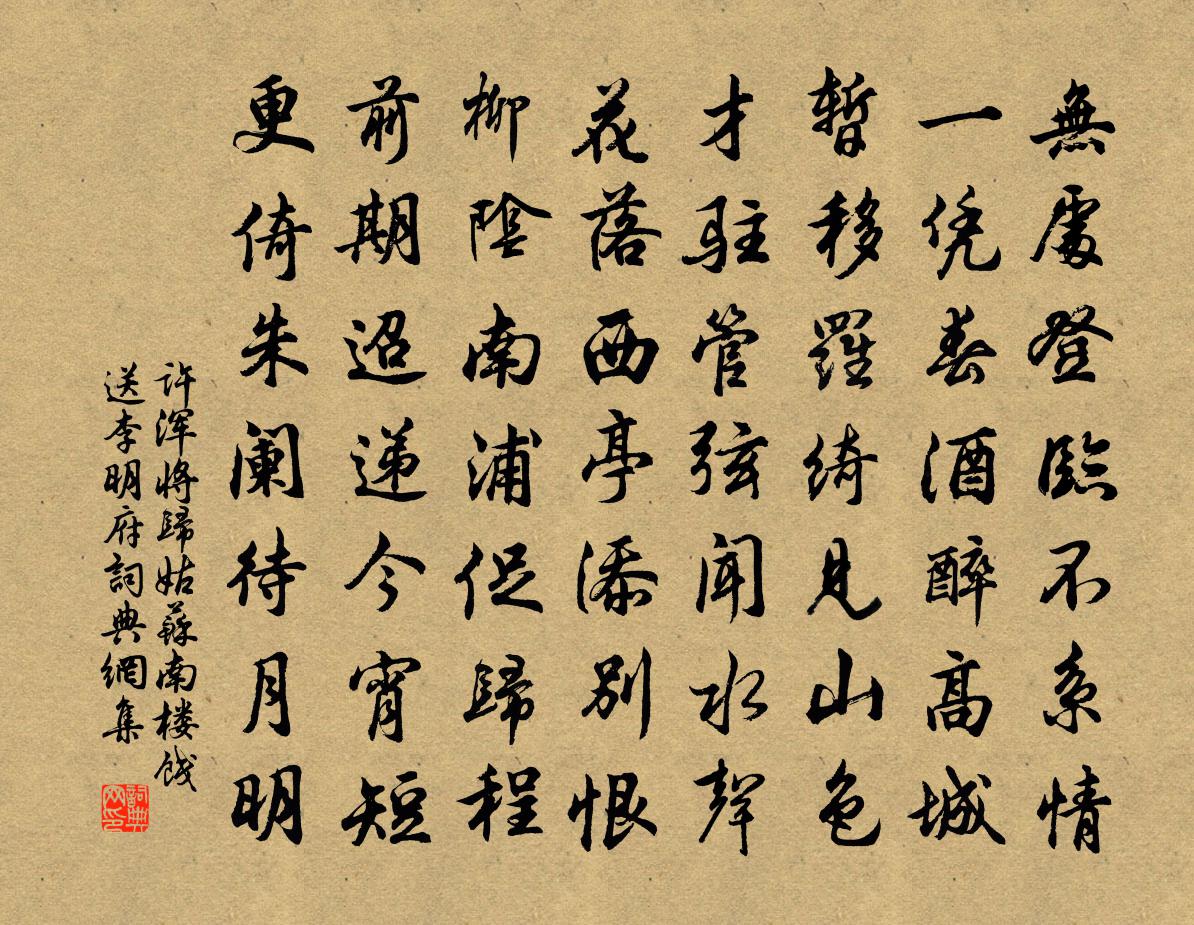 無處登臨不系情
一凭春酒醉高城
暫移羅綺見山色
才駐管弦聞水聲
花落西亭添別恨
柳陰南浦促歸程
前期迢递今宵短
更倚朱阑待月明
許渾將歸姑蘇南楼餞
送李明府詞典網集
詞典网印